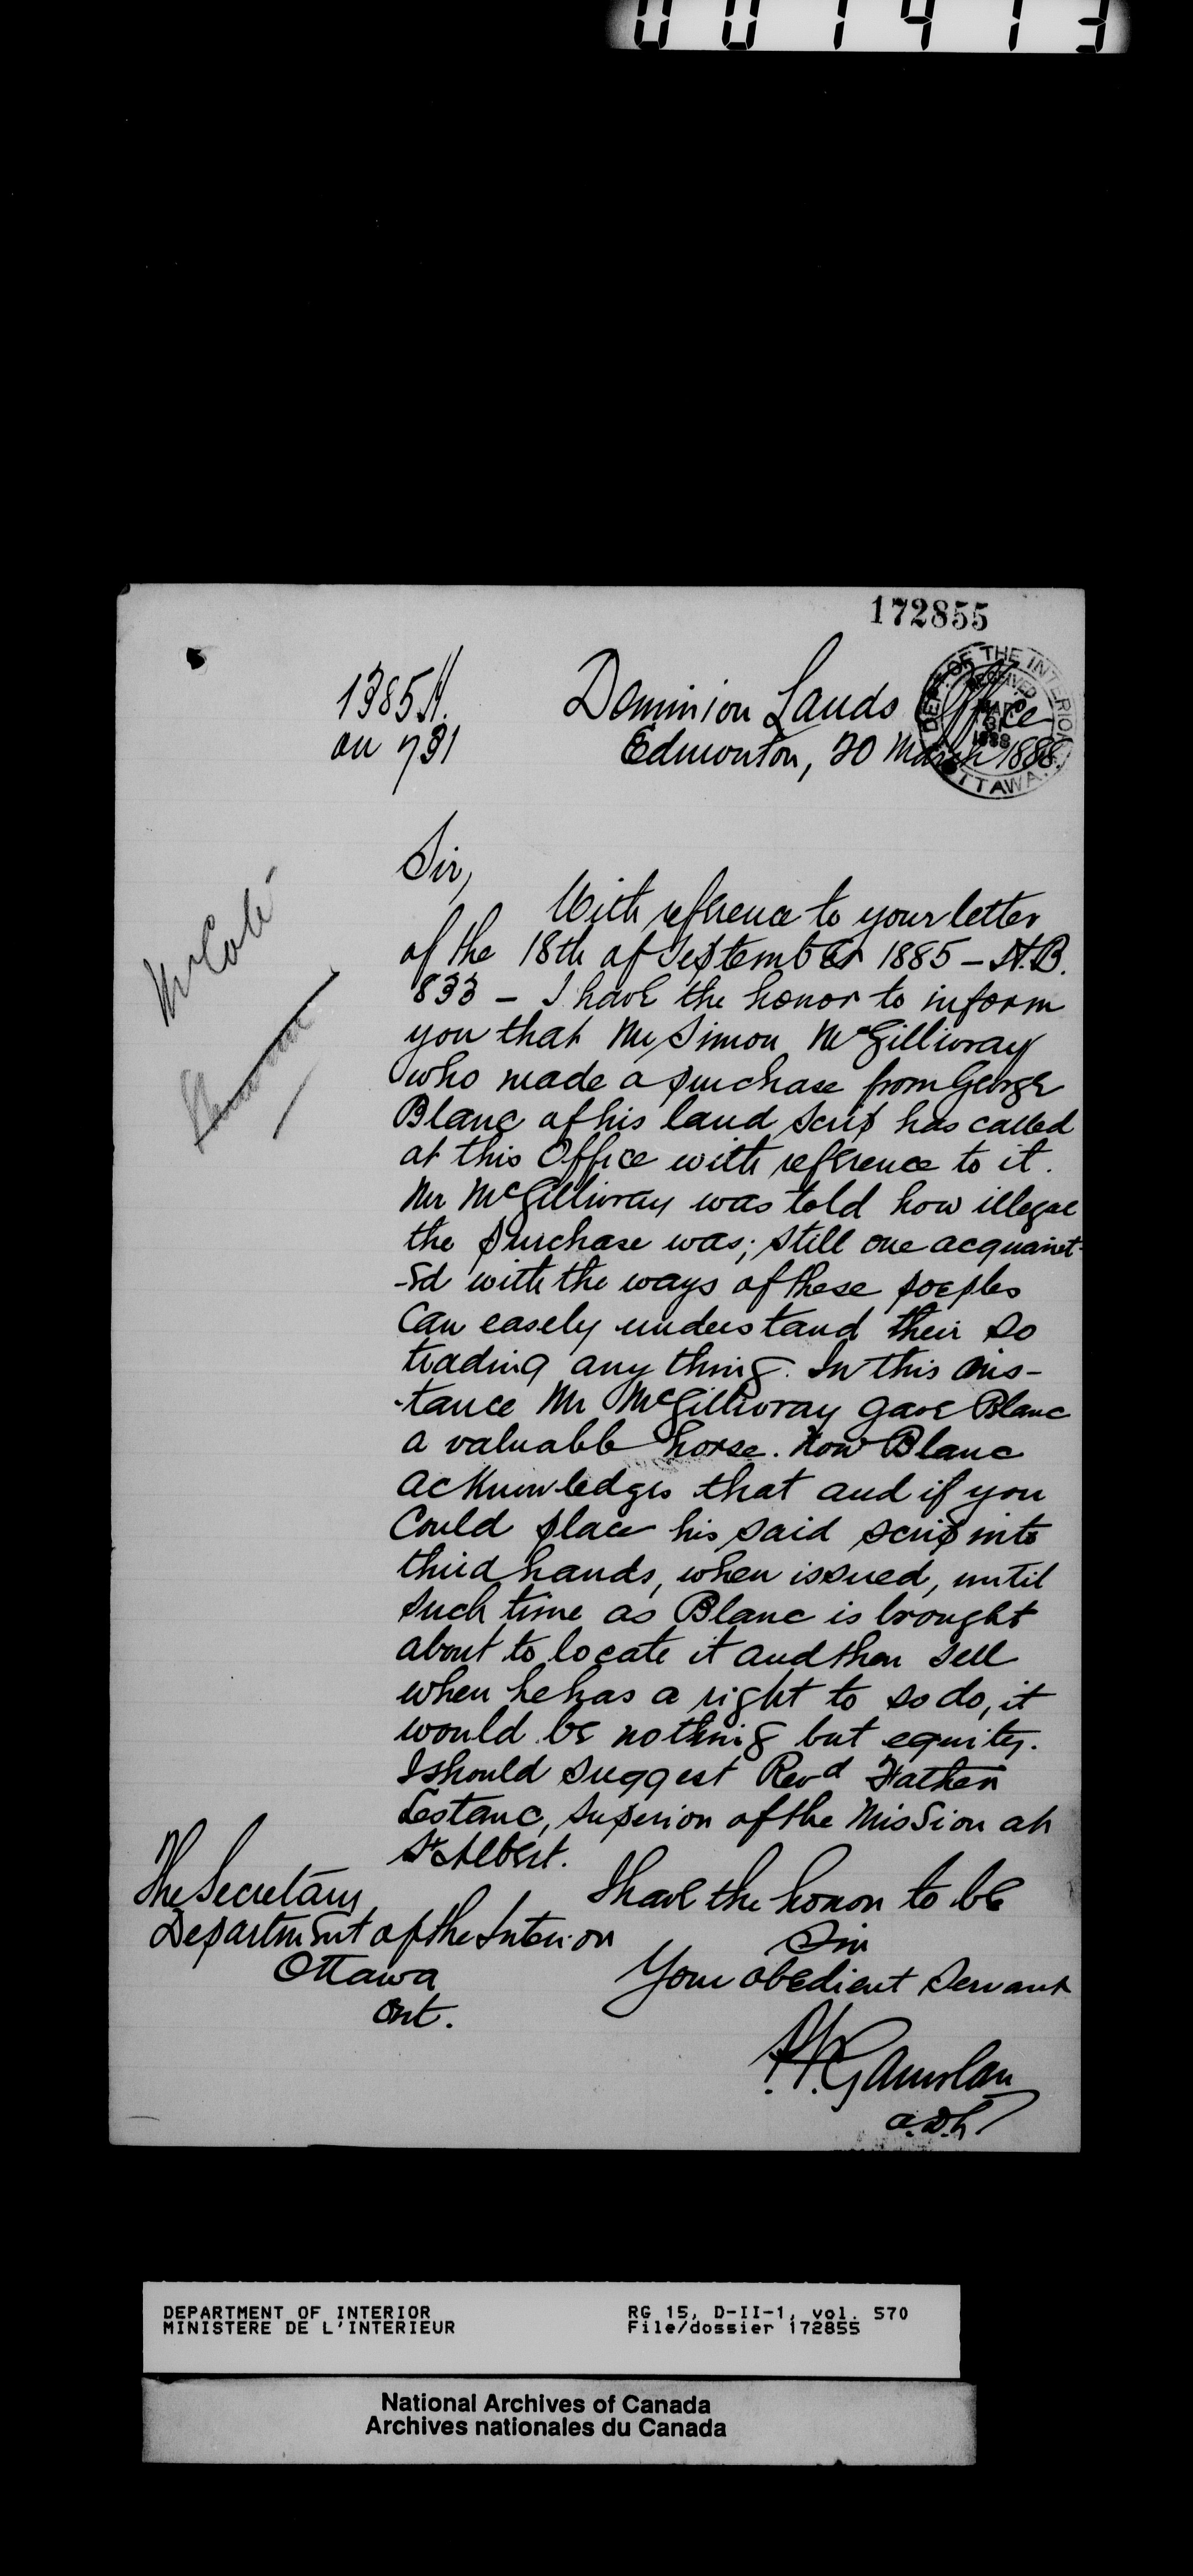 001413
172855
1385 H.
on 731
Dominion Lands Office
Edmonton, 20 March 1888.
DEPT. OF THE INTERIOR
RECEIVED
1888
OTTAWA
Sir,
With reference to your letter
of the 18th of September 1885 – H.B.
833 – I have the honor to inform
you that Mr Simon McGillivray
who made a purchase from George
Blanc of his land scrip has called
at this Office with reference to it.
Mr McGillivray was told how illegal
the purchase was; still one acquaint-
-ed with the ways of these poeples
can easely understand their so
trading any thing. In this ins-
-tance Mr McGillivray gave Blanc
a valuable horse. Now Blanc
acknowledges that and if you
could place his said scrip into
third hands, when issued, until
such time as Blanc is brought
about to locate it and then sell
when he has a right to so do, it
would be nothing but equity.
I should suggest Revd Father
Lestanc, Superior of the Mission at
St Albert.
I have the honor to be
Sir
Your obedient servant
The Secretary
Department of the Interior
Ottawa
Ont.
DEPARTMENT OF INTERIOR
MINISTERE DE L'INTERIEUR
RG 15, D-II-1, vol. 570
File/dossier 172855
National Archives of Canada
Archives nationales du Canada